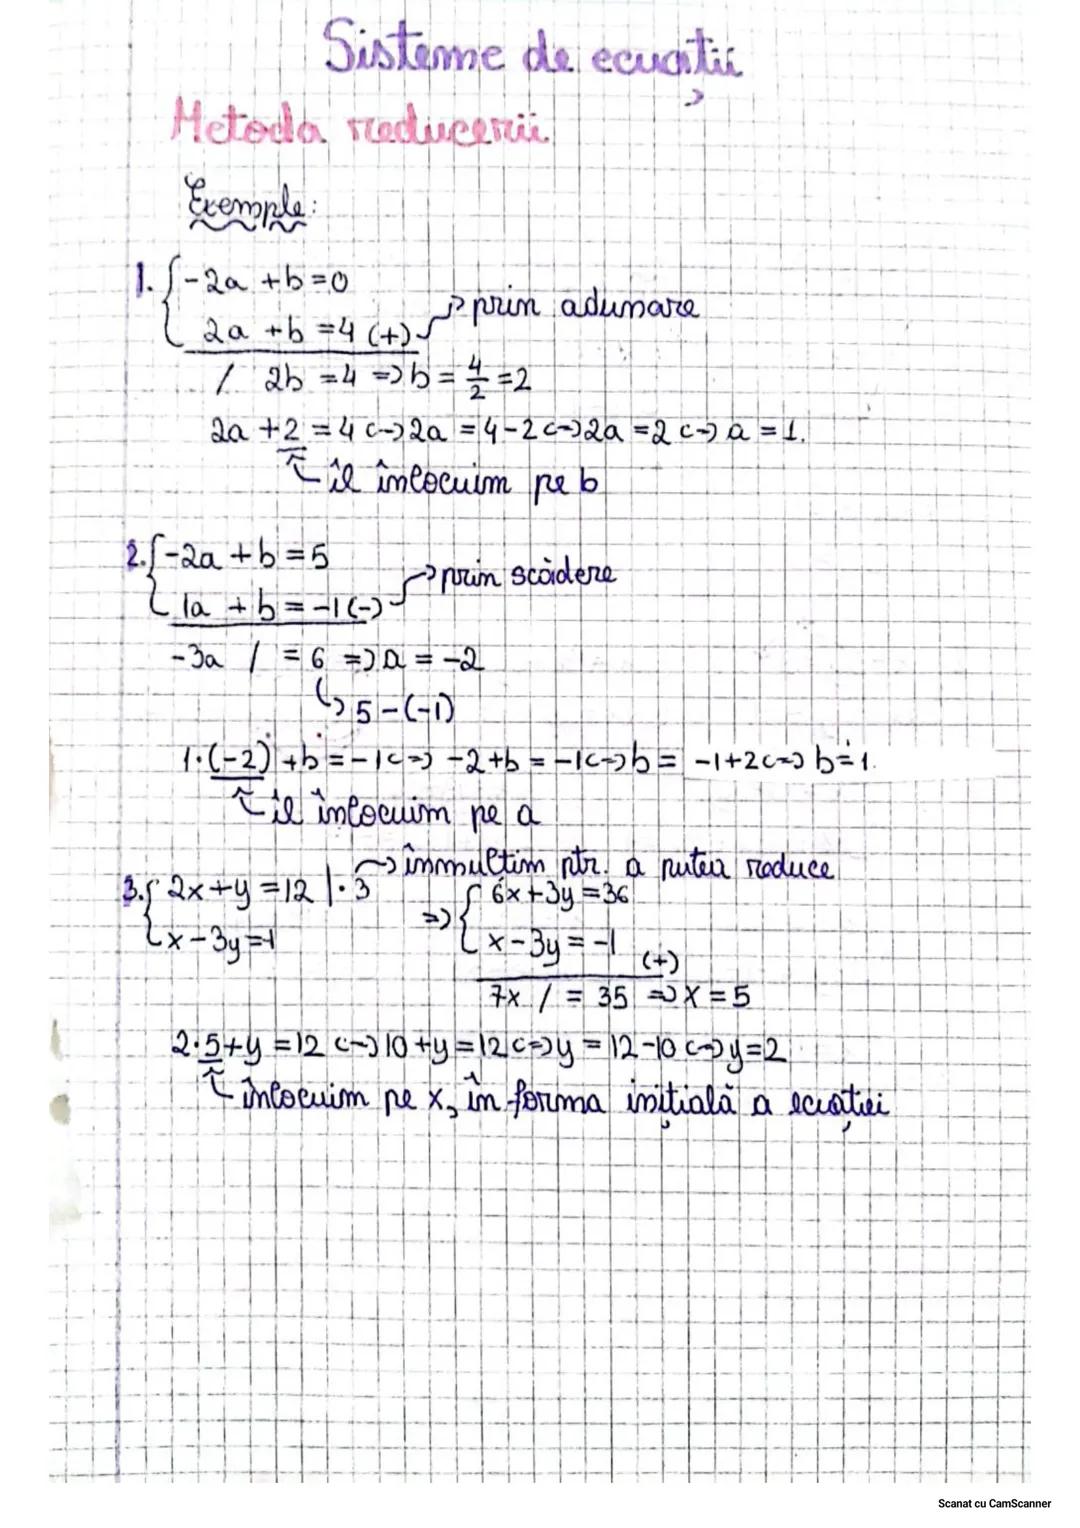 Sisteme de ecuații
Metoda reducerii
Exemple:
1. { -2a + b = 0
2a + b = 4 (+) → prin adunare
/ 2b = 4 => b = 4/2 = 2
2a + 2 = 4 <=> 2a = 4 - 2 <=> 2a = 2 <=> a = 1.
îl înlocuim pe b
2. { -2a + b = 5
1a + b = -1 (-) → prin scădere
-3a / = 6 => a = -2
↳ 5 - (-1)
1·(-2) + b = -1 <=> -2 + b = -1 <=> b = -1 + 2 <=> b = 1.
îl înlocuim pe a
→ înmulțim ptr. a putea reduce
3. { 2x + y = 12 | · 3 => { 6x + 3y = 36
x - 3y = -1 x - 3y = -1 (+)
7x / = 35 => x = 5
2·5 + y = 12 <=> 10 + y = 12 <=> y = 12 - 10 <=> y = 2
înlocuim pe x, în forma inițială a ecuației
Scanat cu CamScanner